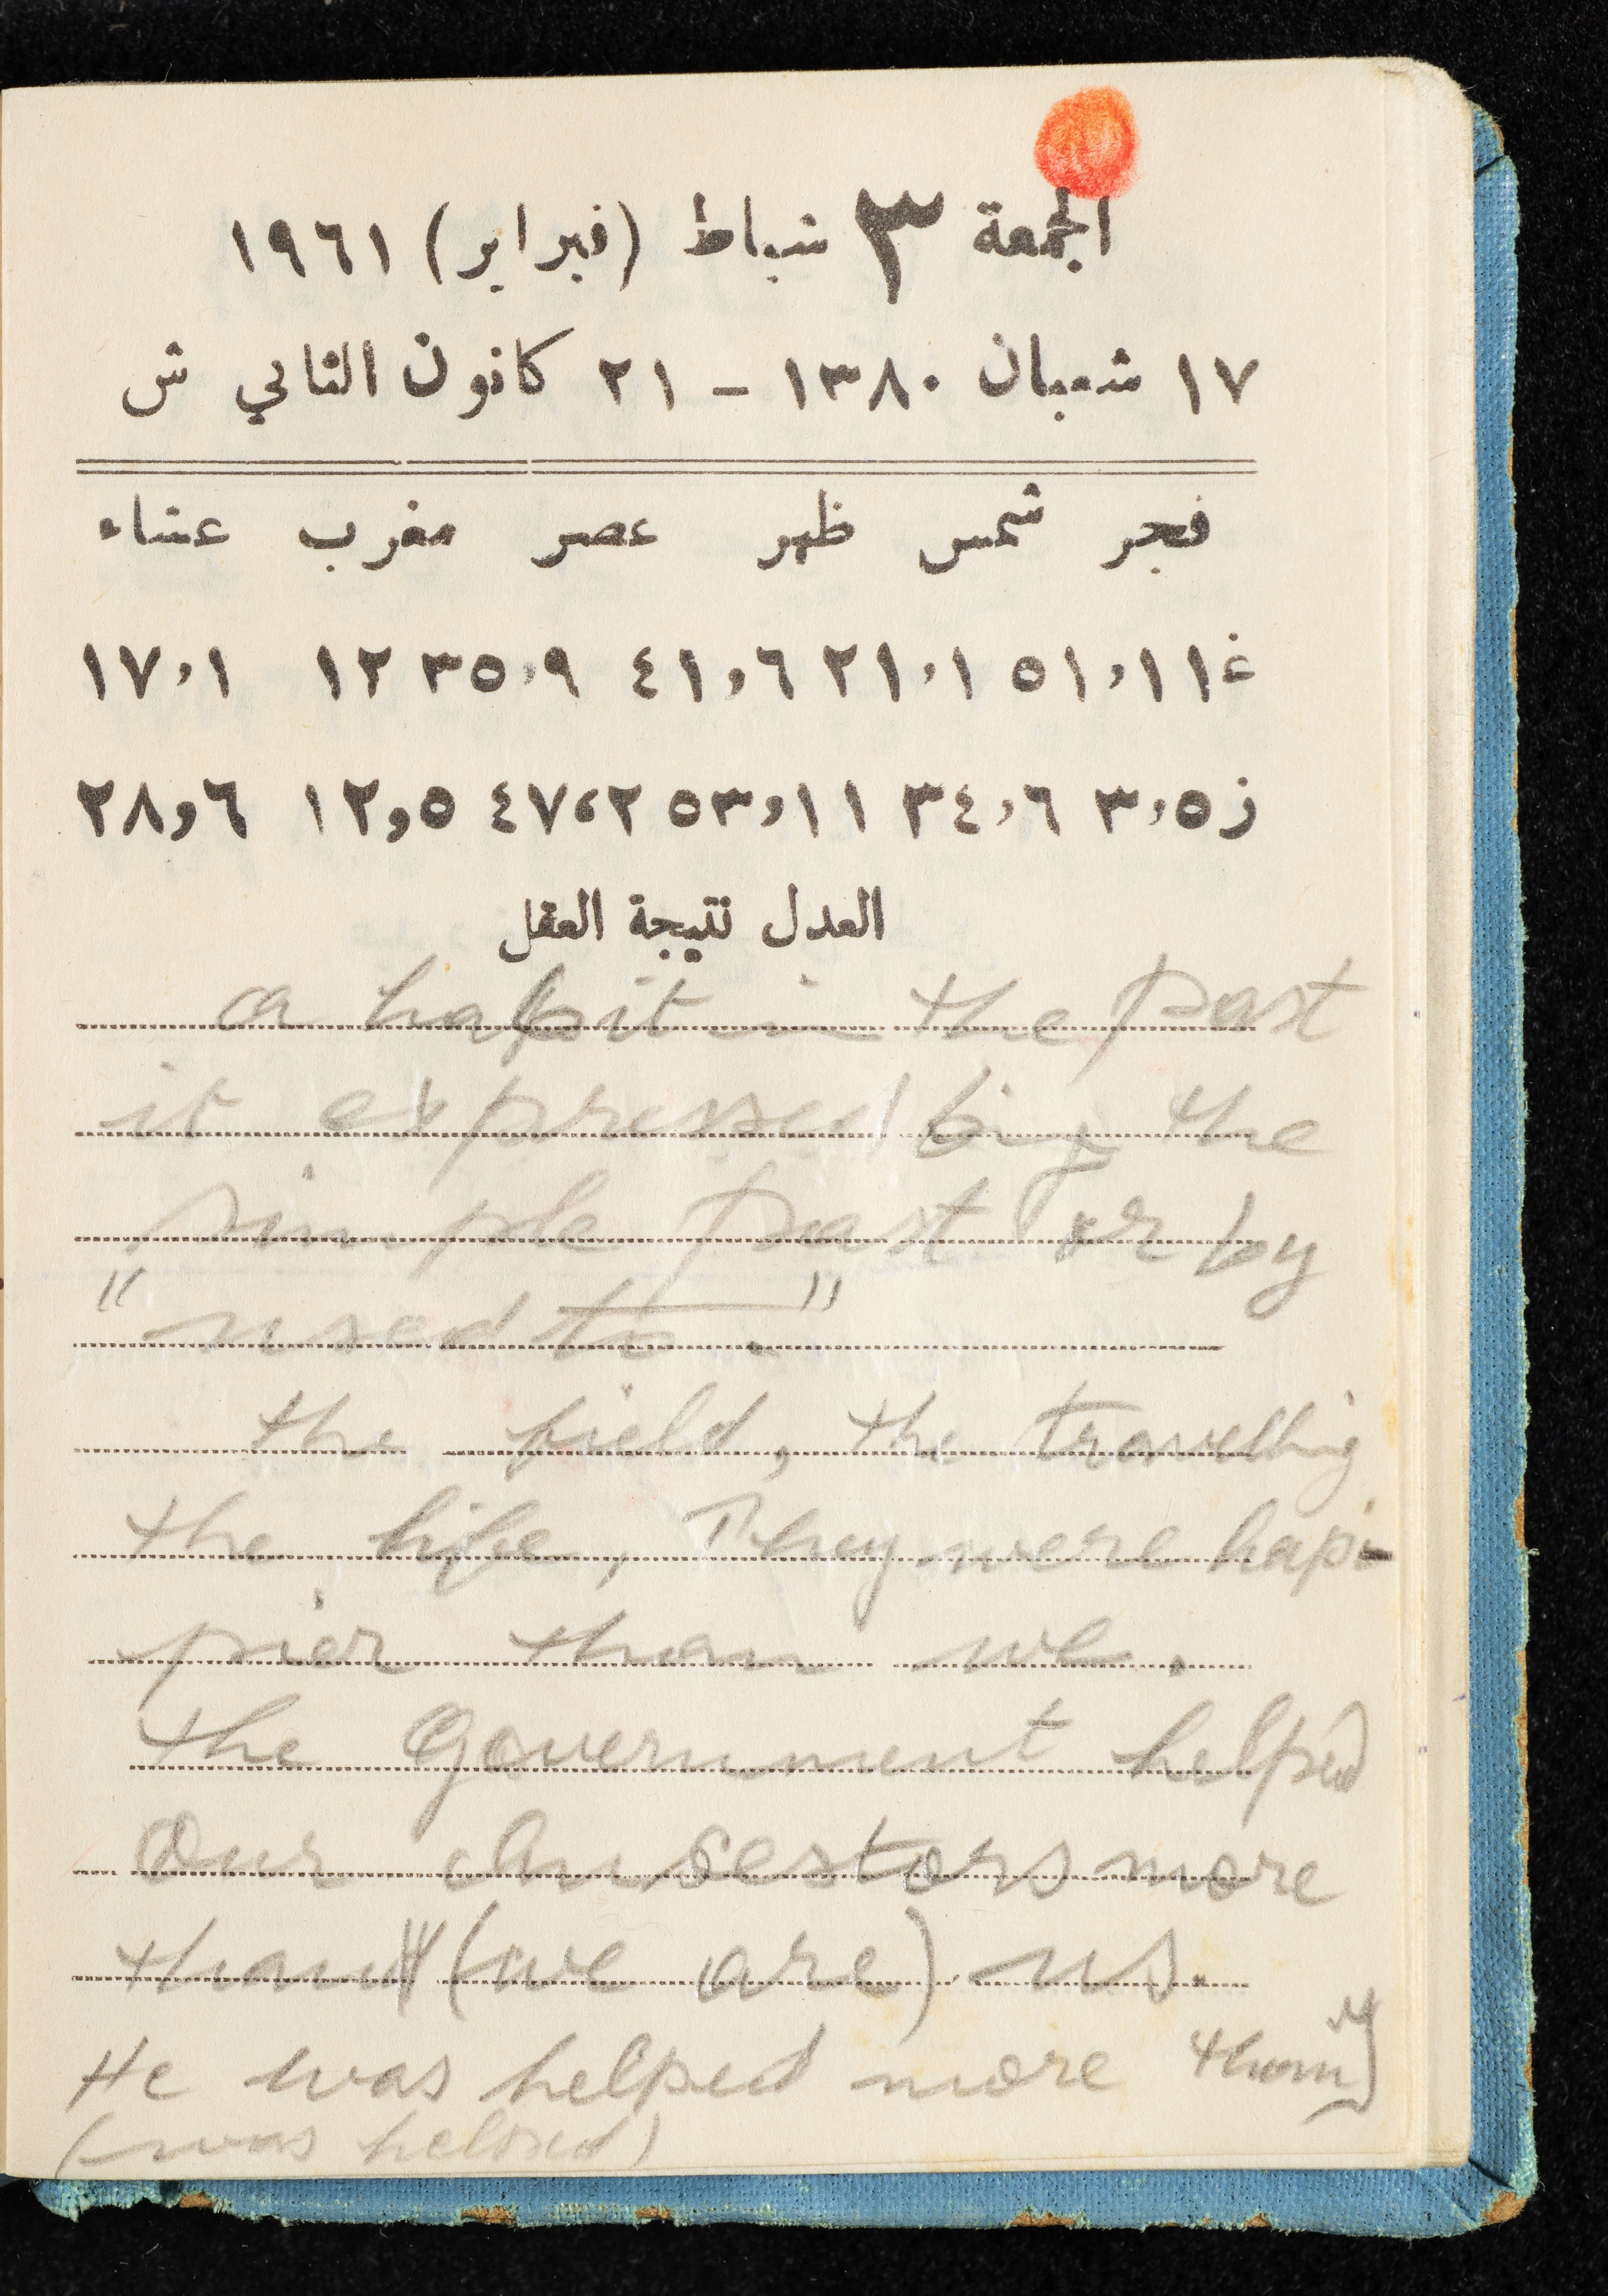 الجمعة ٣ شباط (فبراير) ١٩٦١
١٧ شعبان ١٣٨٠ - ٢١ كانون الثاني ش
فجر شمس ظهر عصر مغرب عشاء
غ ١١,٥١ ١,٢١ ٦,٤١ ٩,٣٥ ١٢ ١,١٧
ز ٥,٣ ٦,٣٤ ١١,٥٣ ٢,٤٧ ٥,١٢ ٦,٢٨
العدل نتيجة العقل
a habit in the past
it expressed by the
simple past or by
"used to."
the field, the travelling
the life, They were hap-
pier than we.
the Government helped
Our Ancestors more
than (we are) us.
He was helped more than I
(was helped)